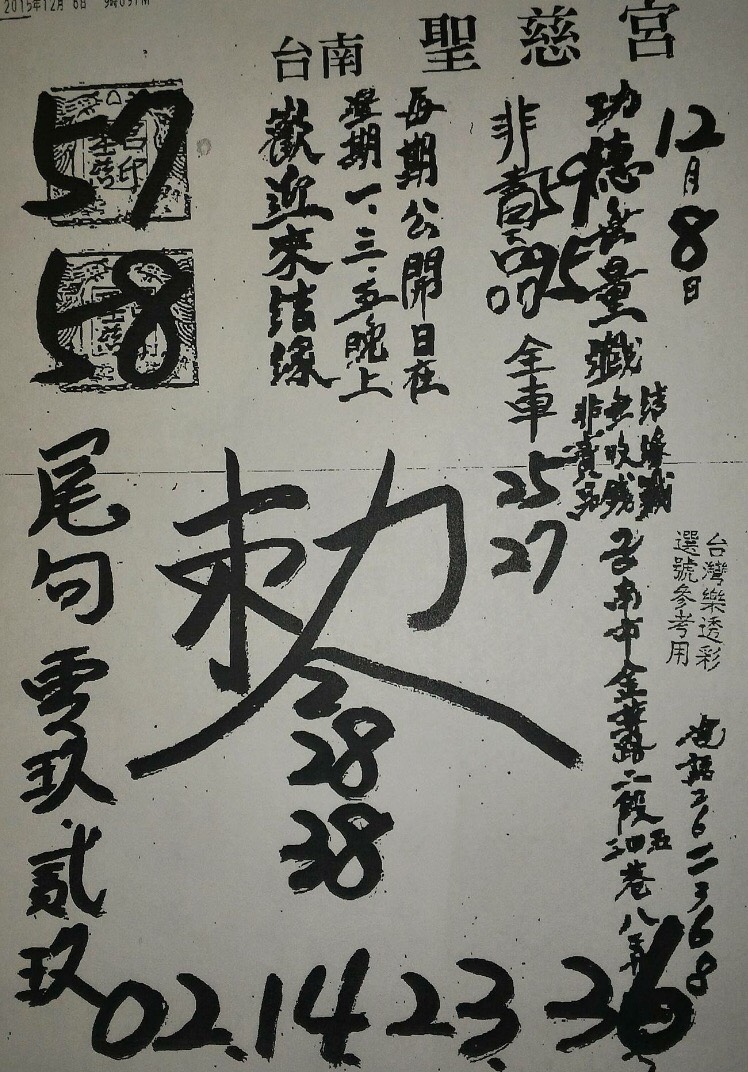 2015年12月 6日
台南 聖慈宮
12月8日
功德無量
結緣
無收錢
非賣品
非賣品
59
95
全車
25
27
每期公開日在
星期一、三、五晚上
歡迎來結緣
57
58
尾句 零玖.貳玖
敕
2
28
38
台灣樂透彩
選號參考用
台南市金華路二段
巷八弄
電話2622368
02.14 23.36